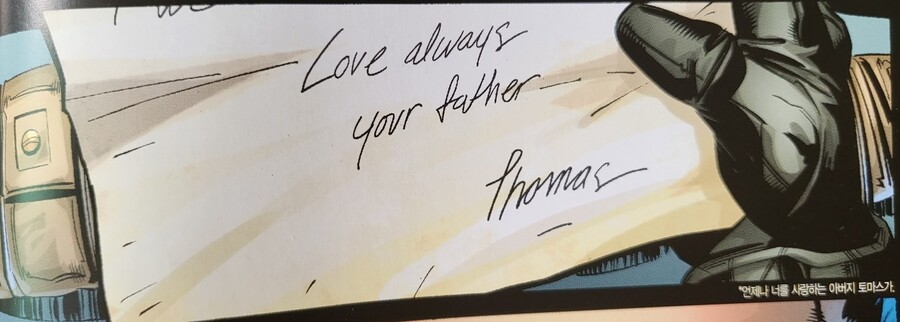 Love always
your father
Thomas
*언제나 너를 사랑하는 아버지 토마스가.